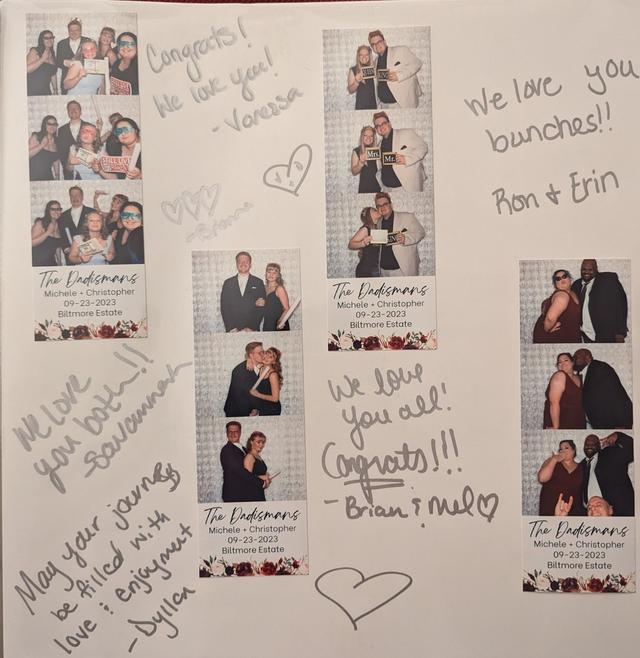 Congrats!
We love you!
- Vanessa
We love you
bunches!!
Ron & Erin
The Dadismans
Michele + Christopher
09-23-2023
Biltmore Estate
Mrs.
Mr.
The Dadismans
Michele + Christopher
09-23-2023
Biltmore Estate
We love
you both!!
- Savannah
We love
you all!
Congrats!!!
- Brian & Mel
The Dadismans
Michele + Christopher
09-23-2023
Biltmore Estate
The Dadismans
Michele + Christopher
09-23-2023
Biltmore Estate
May your journey
be filled with
love & enjoyment
- Dyllan